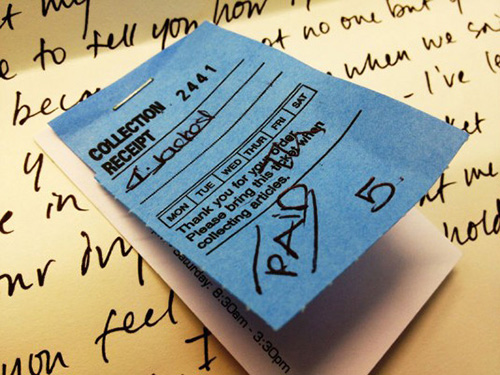 to tell you how
no one but y
when we sa
- I've le
COLLECTION 2441
RECEIPT
MON TUE WED THUR FRI SAT
Thank you for your order.
Please bring this ticket when
collecting articles.
PAID
5.
Saturday: 8:30am - 3:30pm
e in
you feel I
me
hold